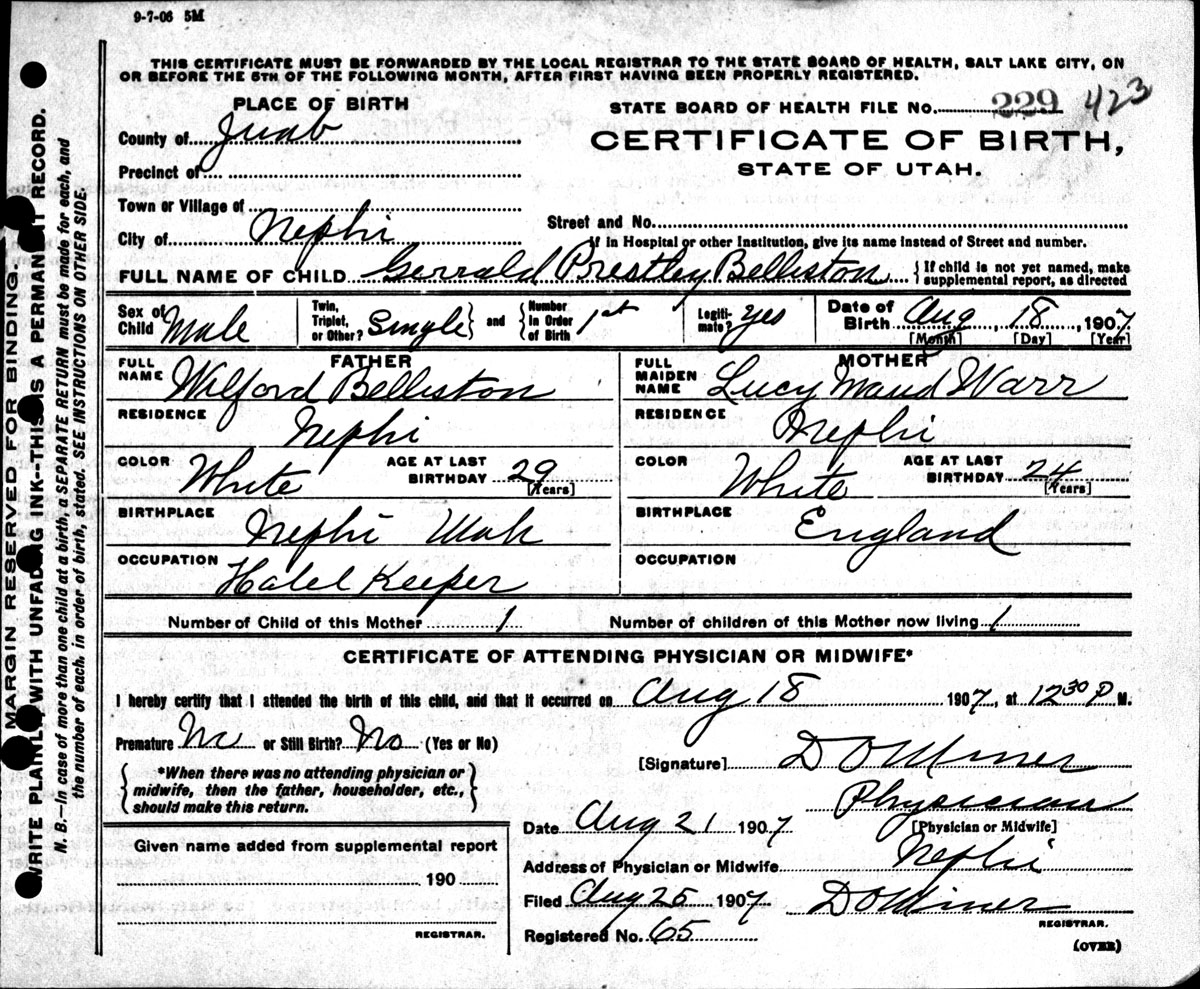 9-7-06 5M
THIS CERTIFICATE MUST BE FORWARDED BY THE LOCAL REGISTRAR TO THE STATE BOARD OF HEALTH, SALT LAKE CITY, ON
OR BEFORE THE 5TH OF THE FOLLOWING MONTH, AFTER FIRST HAVING BEEN PROPERLY REGISTERED.
PLACE OF BIRTH
STATE BOARD OF HEALTH FILE No. 229 423
County of Juab
CERTIFICATE OF BIRTH,
STATE OF UTAH.
Precinct of
Town or Village of
Street and No.
City of Nephi
If in Hospital or other Institution, give its name instead of Street and number.
FULL NAME OF CHILD Gerrald Prestley Belliston {If child is not yet named, make supplemental report, as directed
Sex of Child Male Twin, Triplet, or Other? Single } and { Number in Order of Birth 1st Legitimate? Yes Date of Birth Aug, 18, 1907
[Month] [Day] [Year]
FATHER MOTHER
FULL NAME Wilford Belliston FULL MAIDEN NAME Lucy Maud Warr
RESIDENCE Nephi RESIDENCE Nephi
COLOR White AGE AT LAST BIRTHDAY 29 [Years] COLOR White AGE AT LAST BIRTHDAY 24 [Years]
BIRTHPLACE Nephi Utah BIRTHPLACE England
OCCUPATION Hotel Keeper OCCUPATION
Number of Child of this Mother 1 Number of children of this Mother now living 1
CERTIFICATE OF ATTENDING PHYSICIAN OR MIDWIFE*
I hereby certify that I attended the birth of this child, and that it occurred on Aug 18 1907, at 12 30 P M.
Premature No or Still Birth? No (Yes or No)
[Signature] D O Miner
{ *When there was no attending physician or
midwife, then the father, householder, etc.,
should make this return. }
Physician
[Physician or Midwife]
Date Aug 21 1907
Given name added from supplemental report
190
REGISTRAR.
Address of Physician or Midwife Nephi
Filed Aug 25 1907 D O Miner
REGISTRAR.
Registered No. 65
(OVER)
MARGIN RESERVED FOR BINDING.
WRITE PLAINLY, WITH UNFADING INK--THIS IS A PERMANENT RECORD.
N. B.—In case of more than one child at a birth, a SEPARATE RETURN must be made for each, and
the number of each, in order of birth, stated. SEE INSTRUCTIONS ON OTHER SIDE.